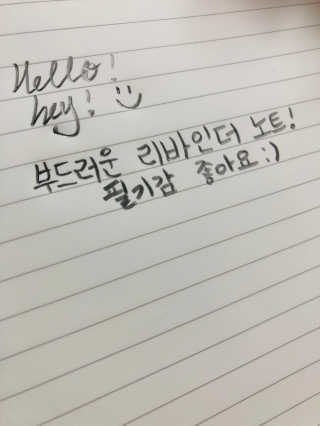 Hello!
hey! :)
부드러운 리바인더 노트!
필기감 좋아요 :)